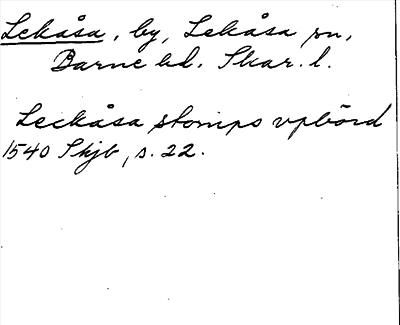 Lekåsa, by, Lekåsa sn,
Barne hd. Skar. l.
Leckåsa stomps vpbörd
1540 Skjb, s. 22.